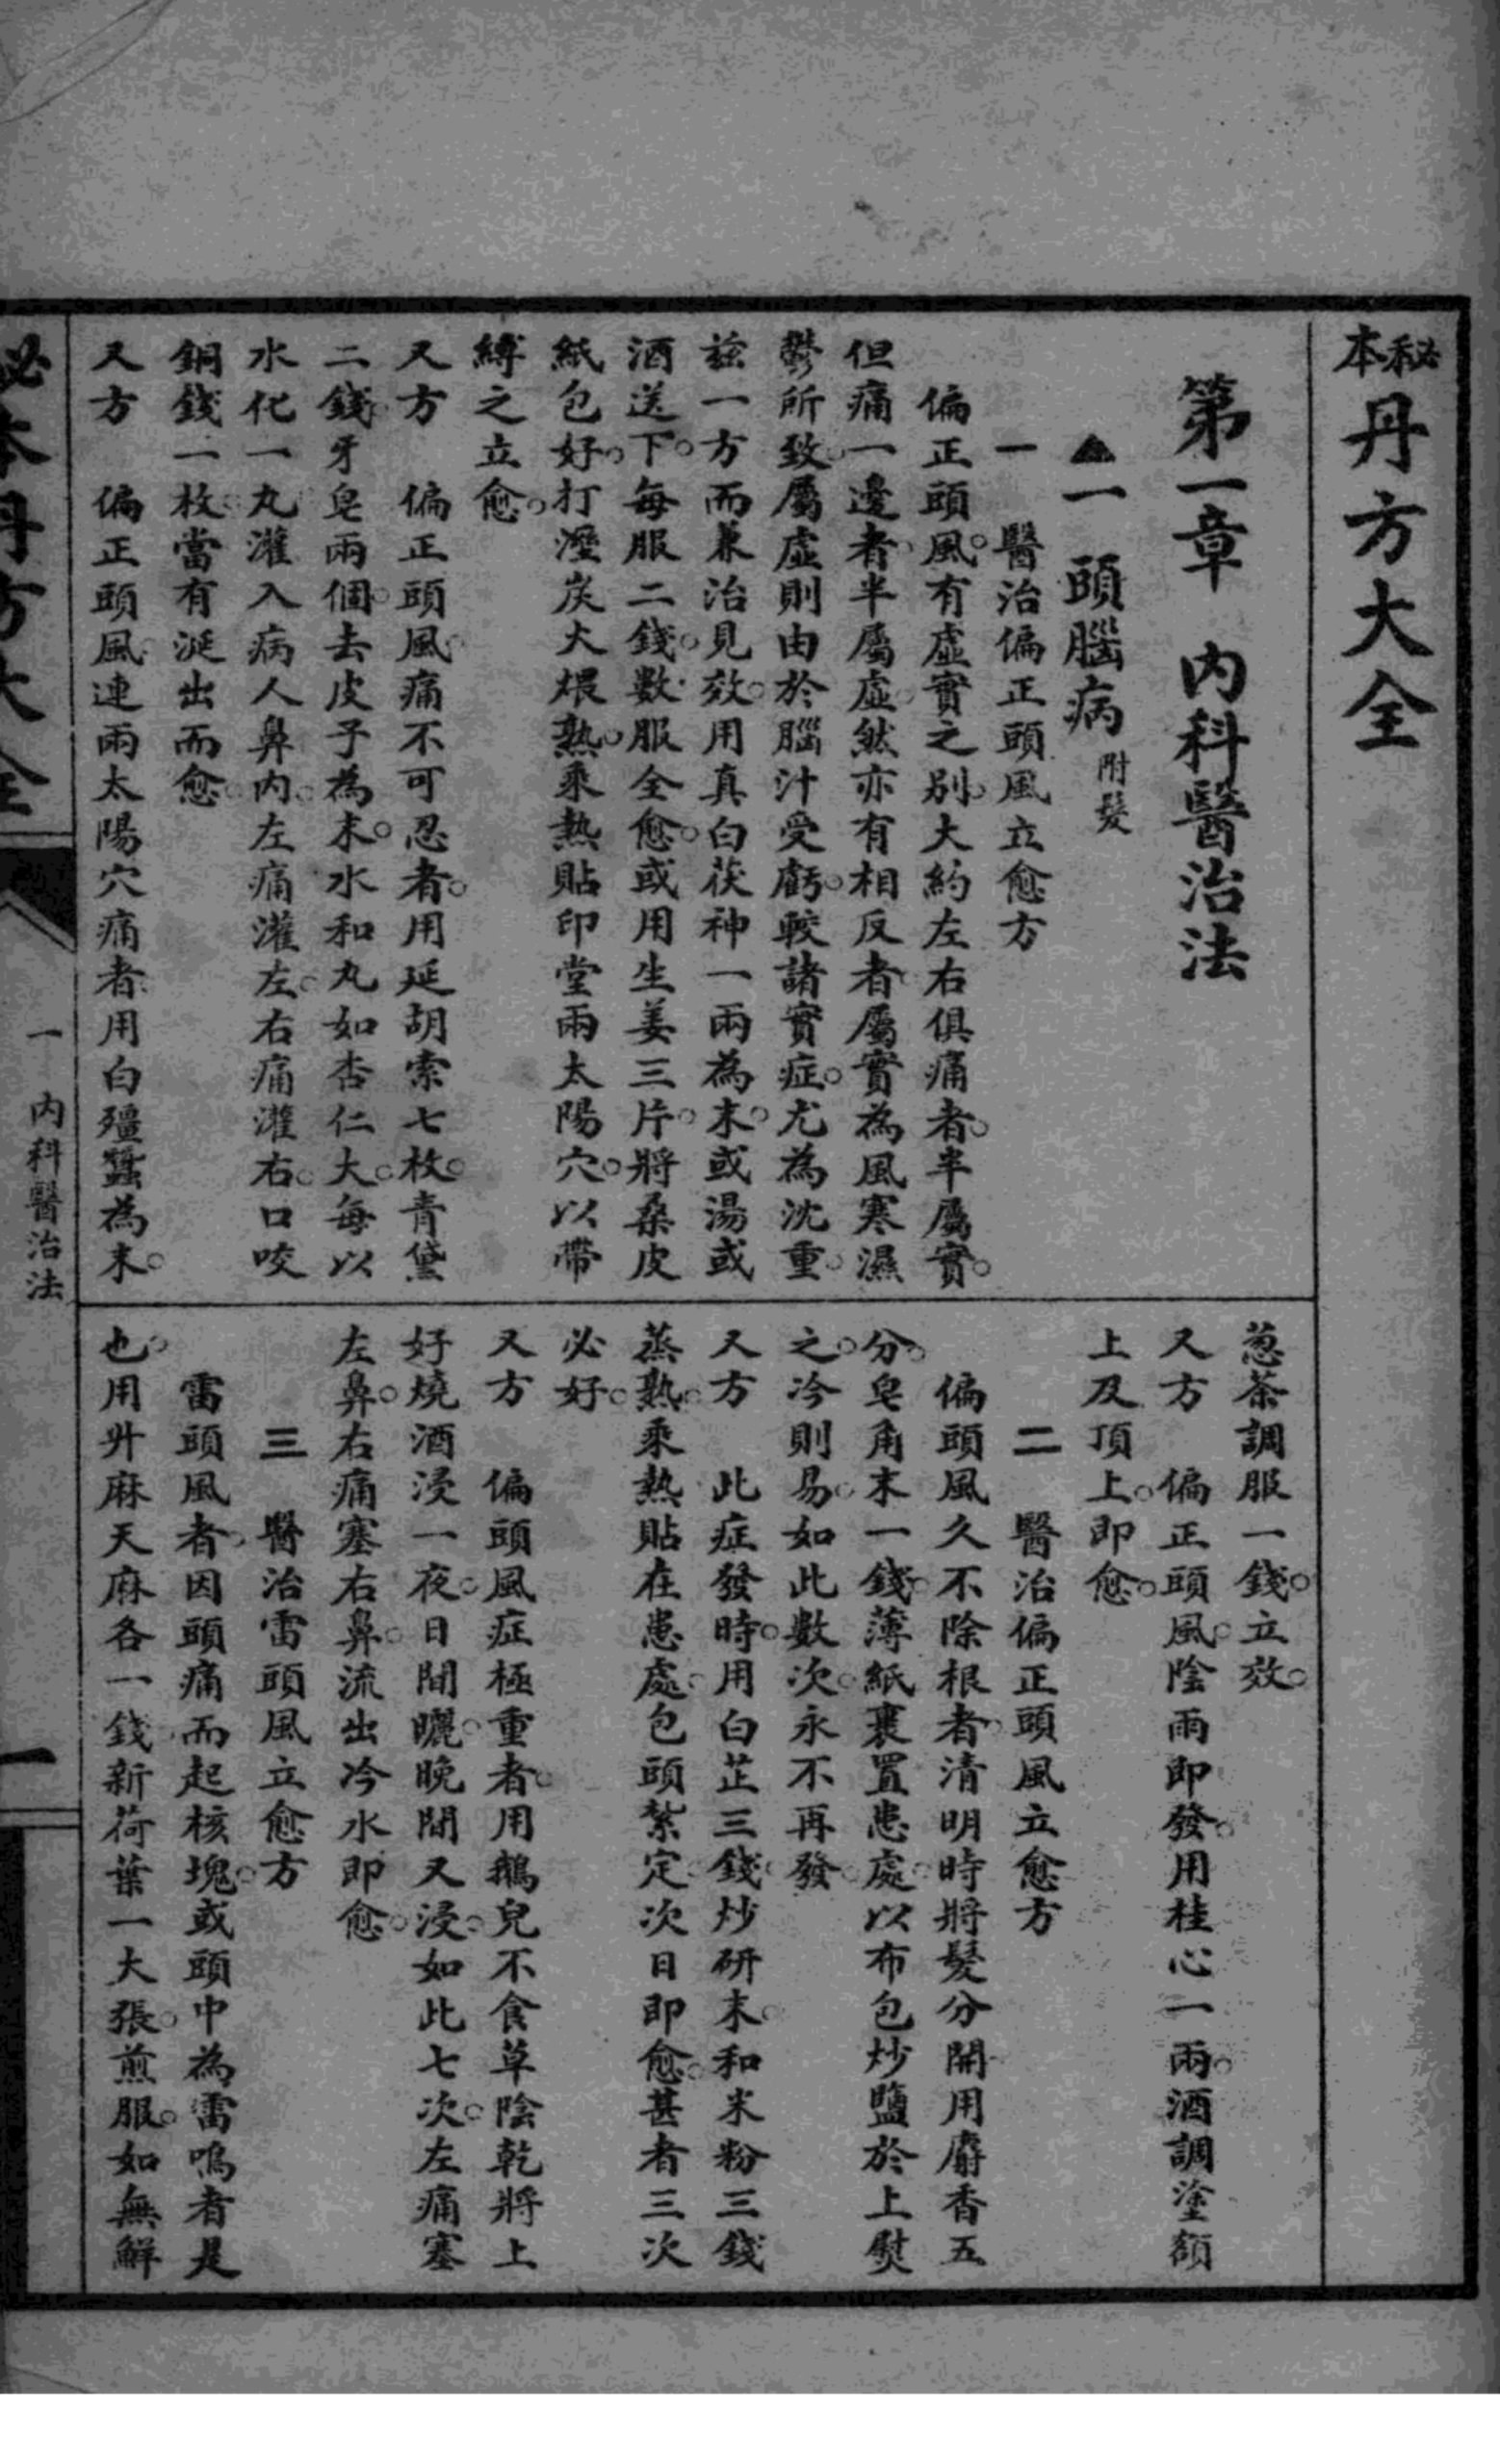 秘本丹方大全
第一章　內科醫治法
▲一　頭腦病　附髮
一　醫治偏正頭風立愈方
偏正頭風。有虛實之別。大約左右俱痛者。半屬實。
但痛一邊者。半屬虛。然亦有相反者。屬實為風寒濕
鬱所致。屬虛則由於腦汁受虧。較諸實症。尤為沈重。
茲一方而兼治見效。用真白茯神一兩為末。或湯或
酒送下。每服二錢。數服全愈。或用生姜三片。將桑皮
紙包好。打溼炭火煨熟。乘熱貼印堂兩太陽穴。以帶
縛之立愈。
又方　偏正頭風。痛不可忍者。用延胡索七枚。青黛
二錢。牙皂兩個。去皮子為末。水和丸如杏仁大。每以
水化一丸灌入病人鼻內。左痛灌左。右痛灌右。口咬
銅錢一枚。當有涎出而愈。
又方　偏正頭風。連兩太陽穴痛者。用白殭蠶為末。
葱茶調服一錢。立效。
又方　偏正頭風。陰雨即發。用桂心一兩。酒調塗額
上及頂上。即愈。
二　醫治偏正頭風立愈方
偏頭風久不除根者。清明時將髮分開用麝香五
分。皂角末一錢。薄紙裹置患處。以布包炒鹽於上熨
之。冷則易。如此數次。永不再發。
又方　此症發時。用白芷三錢。炒研末。和米粉三錢
蒸熟。乘熱貼在患處。包頭紮定。次日即愈。甚者三次
必好。
又方　偏頭風症極重者。用鵝兒不食草陰乾將上
好燒酒浸一夜。日間曬。晚間又浸。如此七次。左痛塞
左鼻。右痛塞右鼻。流出冷水即愈。
三　醫治雷頭風立愈方
雷頭風者。因頭痛而起核塊。或頭中為雷鳴者是
也。用升麻天麻各一錢新荷葉一大張。煎服。如無鮮
秘本丹方大全
一　內科醫治法
一